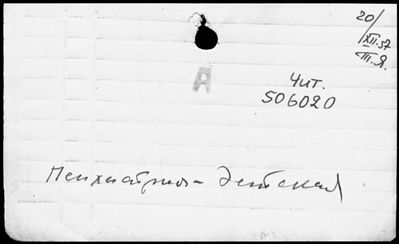 20/
XII.57
Ш.Я.
А
Чит.
506020
Психиатрия - детская